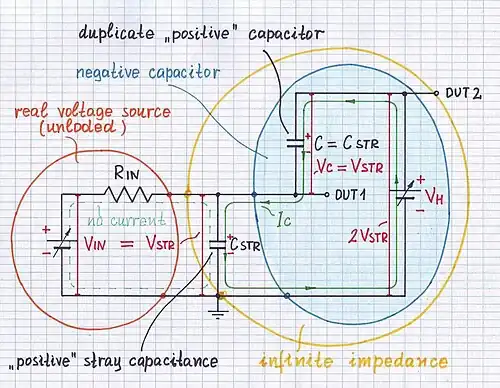 duplicate „positive" capacitor
negative capacitor
real voltage source
(unloded)
DUT2
RIN
+
-
C = CSTR
VC = VSTR
DUT1
no current
IC
+
-
VH
+
-
VIN = VSTR
+
-
CSTR
2VSTR
„positive" stray capacitance
infinite impedance